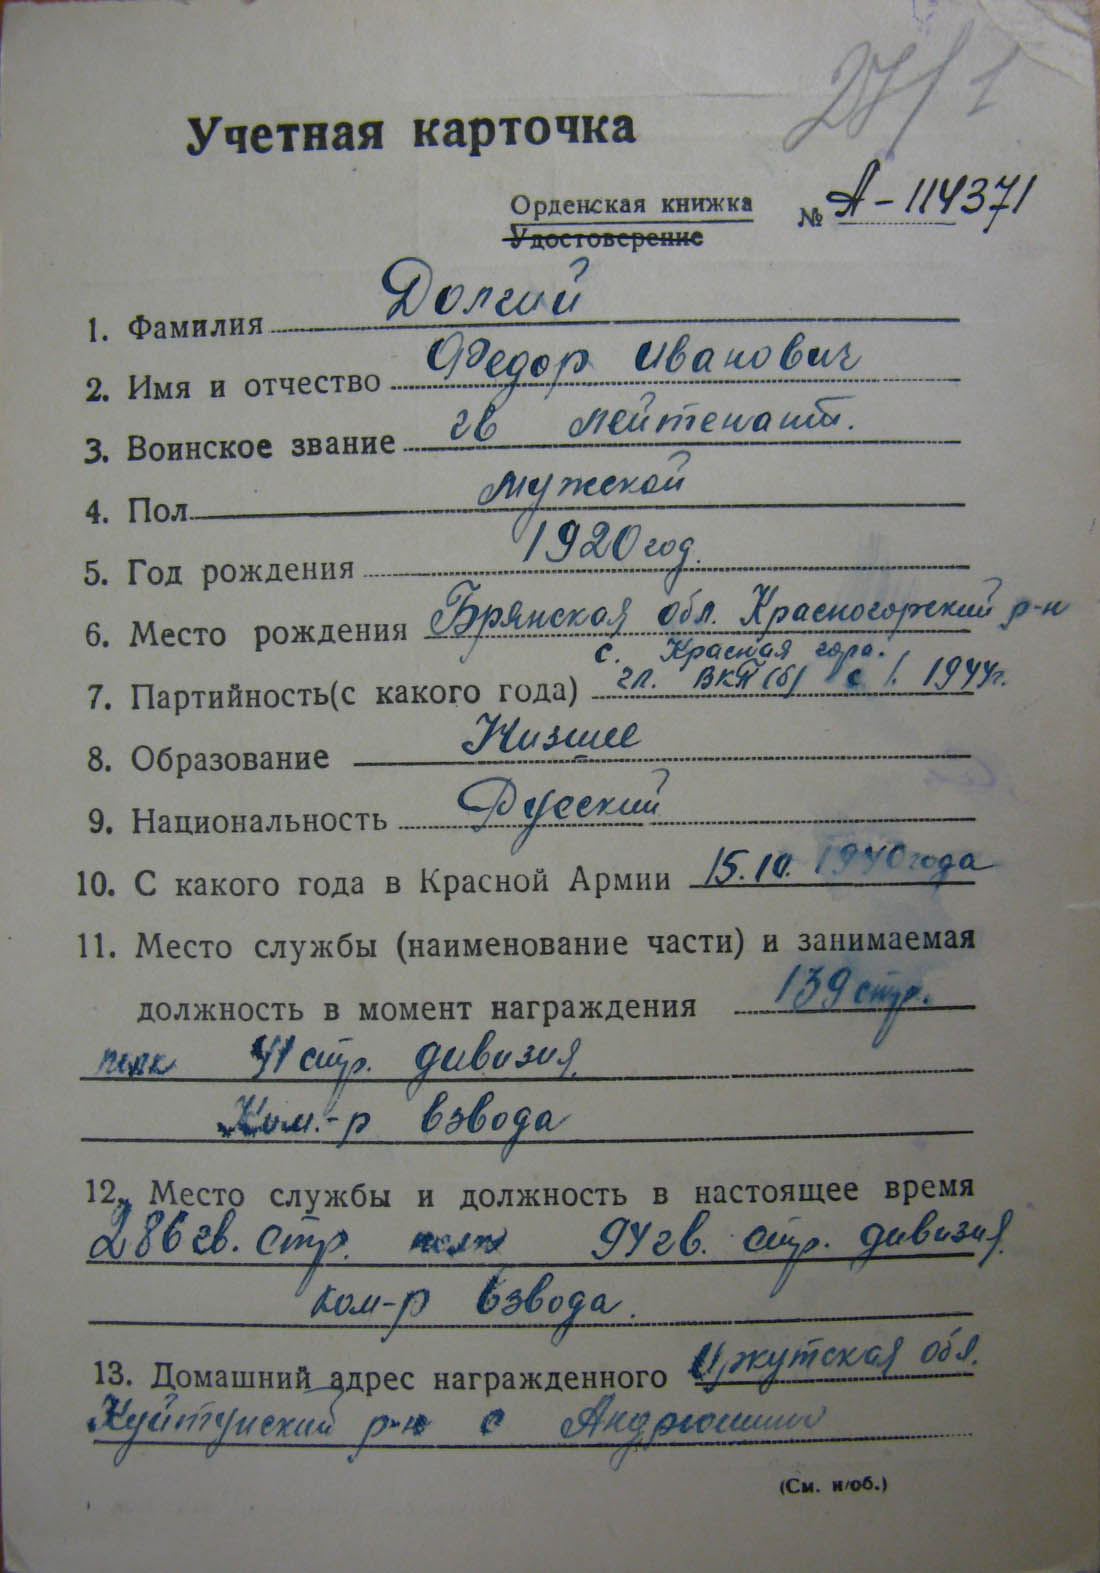 27/1
Учетная карточка
Орденская книжка № А-114371
Удостоверение
1. Фамилия Долгий
2. Имя и отчество Федор Иванович
3. Воинское звание гв лейтенант.
4. Пол мужской
5. Год рождения 1920 год.
6. Место рождения Брянская обл. Красногорский р-н
с. Красная гора.
7. Партийность(с какого года) чл. ВКП(б) с 1944г.
8. Образование Низшее
9. Национальность Русский
10. С какого года в Красной Армии 15.10. 1940 года
11. Место службы (наименование части) и занимаемая
должность в момент награждения 139 стр.
полк 41 стр. дивизия
Ком.-р взвода
12. Место службы и должность в настоящее время
286 гв. стр. полк 94 гв. стр. дивизия
ком-р взвода.
13. Домашний адрес награжденного Иркутская обл.
Куйтунский р-н с Андрюшино
(См. н/об.)